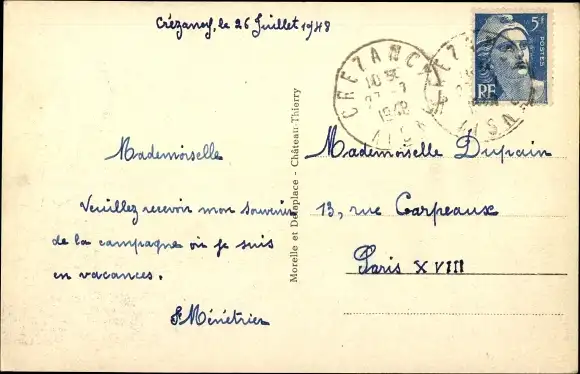 Crézancy, le 26 Juillet 1948
Mademoiselle
Veuillez recevoir mon souvenir
de la campagne où je suis
en vacances.
S. Ménétrier
Morelle et Delaplace - Château-Thierry
5F
POSTES
RF
CREZANCY
27 - 7
1948
AISNE
Mademoiselle Dupain
13, rue Carpeaux
Paris XVIII